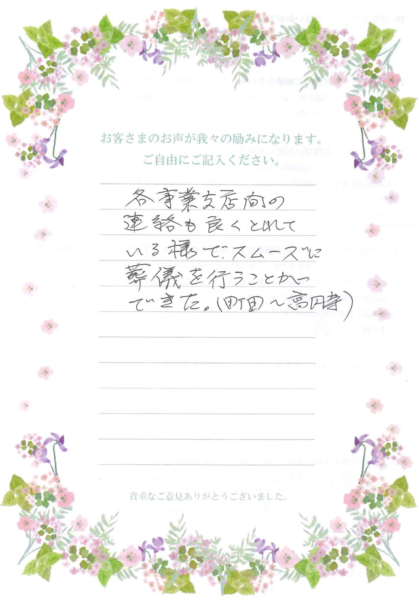 お客さまのお声が我々の励みになります。
ご自由にご記入ください。
各事業支店間の
連絡も良くとれて
いる様で、スムーズに
葬儀を行うことが
できた。(町田〜高円寺)
貴重なご意見ありがとうございました。